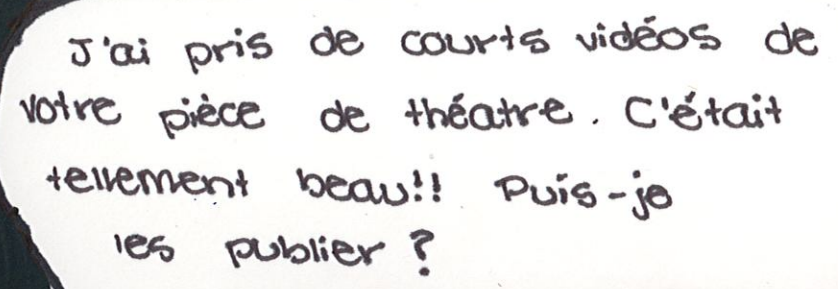 J'ai pris de courts vidéos de
votre pièce de théatre. C'était
tellement beau!! Puis-je
les publier ?